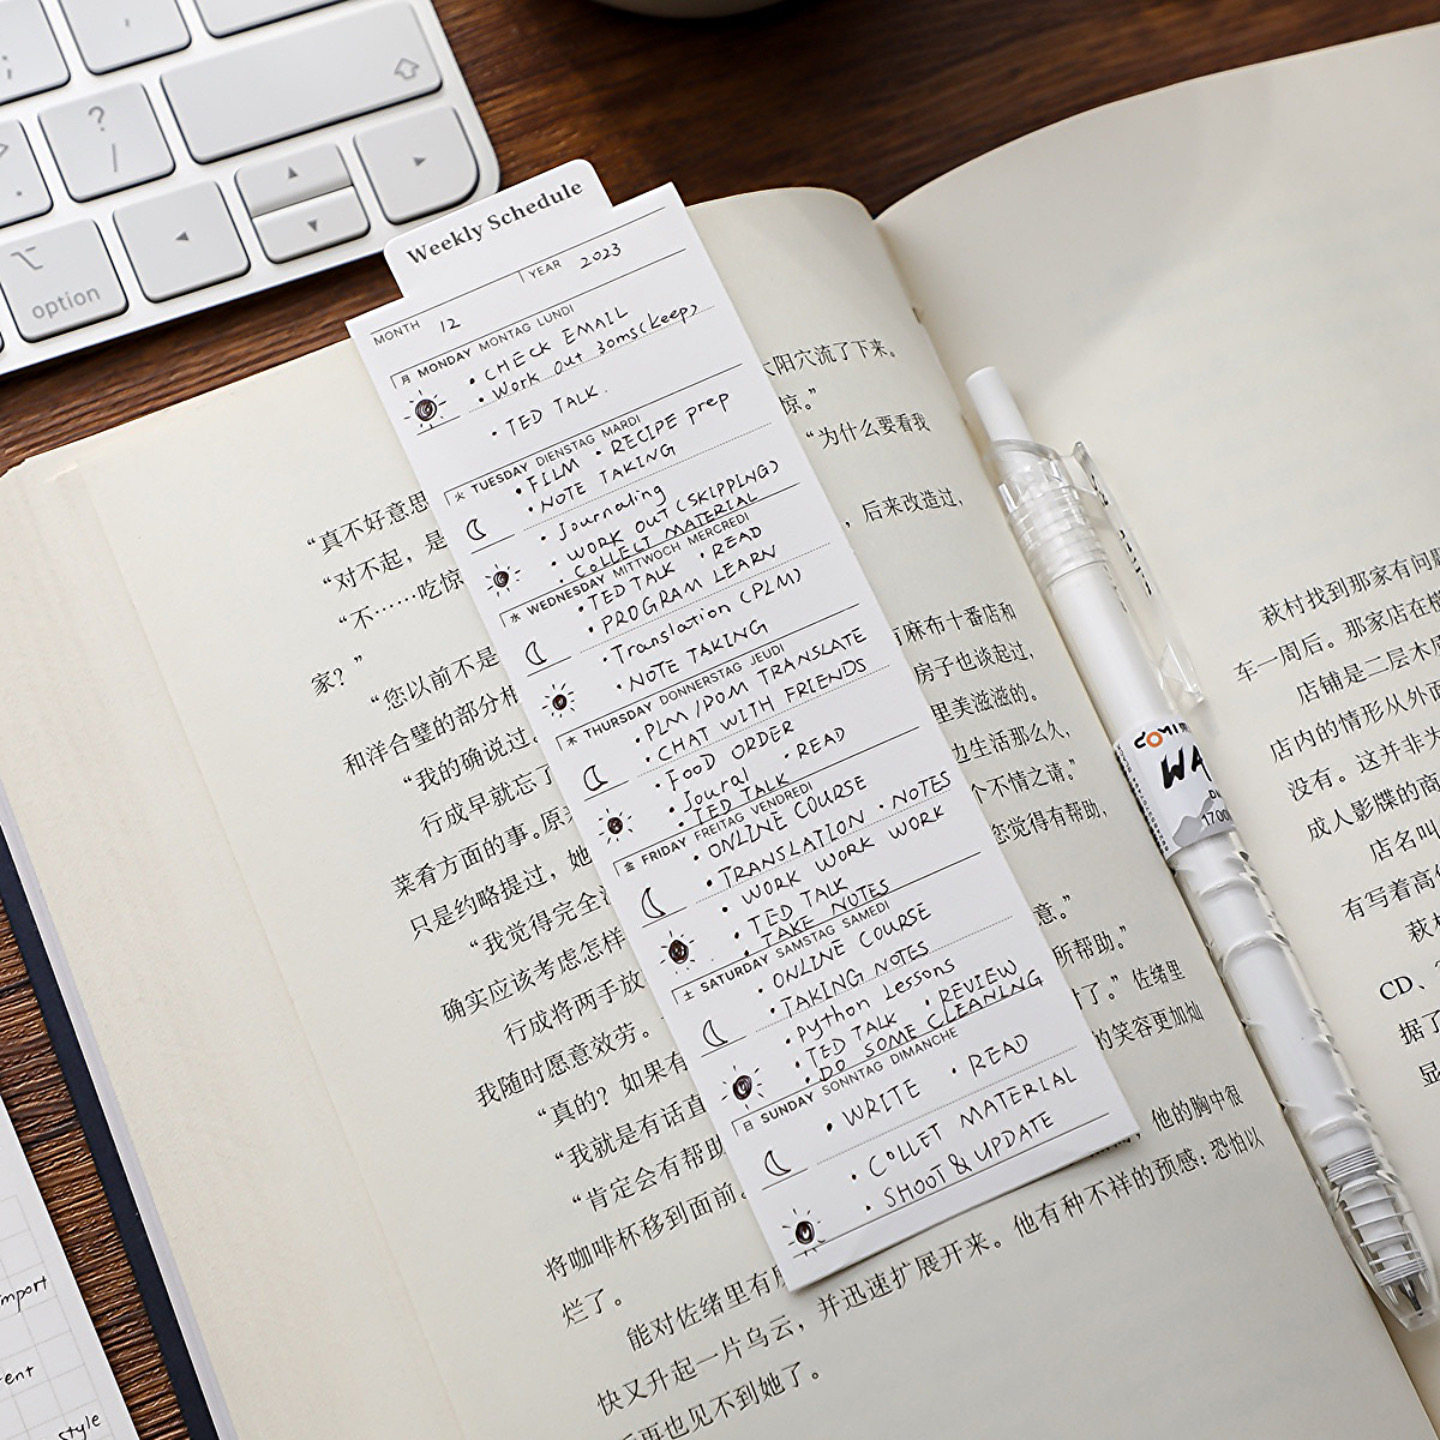 ?
/
option
Weekly Schedule
MONTH 12 YEAR 2023
月 MONDAY MONTAG LUNDI
• CHECK EMAIL
• Work Out 30ms (keep)
• TED TALK.
火 TUESDAY DIENSTAG MARDI
• FILM • RECIPE prep
• NOTE TAKING
• Journaling
• WORK OUT (SKIPPING)
• COLLECT MATERIAL
水 WEDNESDAY MITTWOCH MERCREDI
• TED TALK • READ
• PROGRAM LEARN
• Translation (PLM)
• NOTE TAKING
木 THURSDAY DONNERSTAG JEUDI
• PLM/POM TRANSLATE
• CHAT WITH FRIENDS
• FOOD ORDER
• Joural • READ
• TED TALK
金 FRIDAY FREITAG VENDREDI
• ONLINE COURSE
• TRANSLATION • NOTES
• WORK WORK WORK
• TED TALK
• TAKE NOTES
土 SATURDAY SAMSTAG SAMEDI
• ONLINE COURSE
• TAKING NOTES
• python Lessons
• TED TALK • REVIEW
• DO SOME CLEANING
日 SUNDAY SONNTAG DIMANCHE
• WRITE • READ
• COLLET MATERIAL
• SHOOT & UPDATE
太阳穴流了下来。
惊。”
“真不好意思
“为什么要看我
“对不起，是
，后来改造过，
“不……吃惊
家？”
有麻布十番店和
“您以前不是
房子也谈起过，
和洋合璧的部分相
里美滋滋的。
“我的确说过。
边生活那么久，
行成早就忘了
个不情之请。”
菜肴方面的事。原来
您觉得有帮助，
只是约略提过，她
“我觉得完全没
意。”
确实应该考虑怎样
所帮助。”
行成将两手放
时了。”佐绪里
我随时愿意效劳。
的笑容更加灿
“真的？如果有
“我就是有话直
他的胸中很
“肯定会有帮助
将咖啡杯移到面前。
他有种不祥的预感：恐怕以
烂了。
能对佐绪里有所
并迅速扩展开来。
快又升起一片乌云，
再也见不到她了。
萩村找到那家有问题
车一周后。那家店在横
店铺是二层木质
店内的情形从外面
没有。这并非为
成人影碟的商
店名叫
有写着高价
萩村
CD、
据了
显
WA
1700
import
ent
style